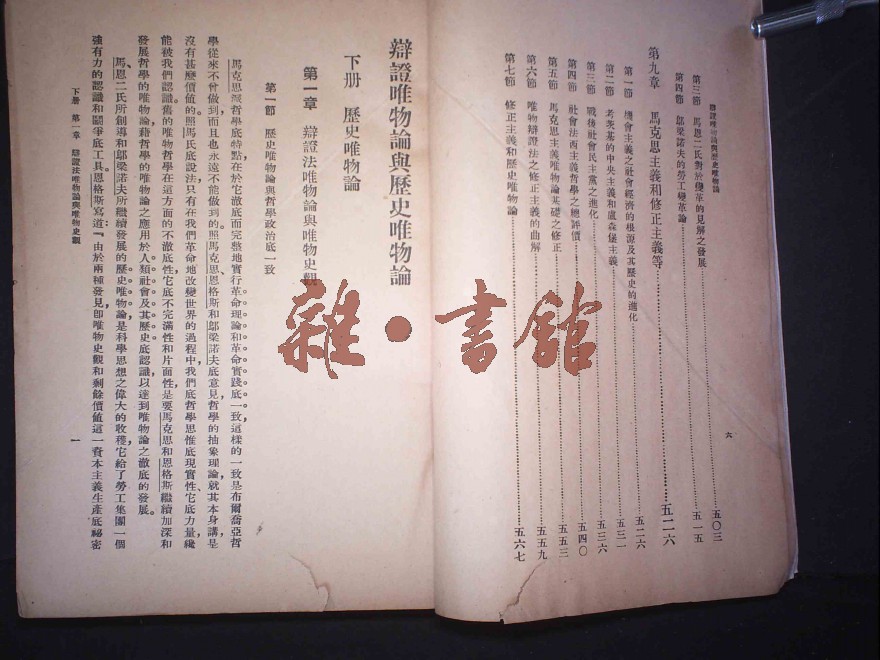 辯證唯物論與歷史唯物論
第三節 馬恩二氏對於變革的見解之發展……五〇三
第四節 鄔梁諾夫的勞工變革論……五一五
第九章 馬克思主義和修正主義等……五二六
第一節 機會主義之社會經濟的根源及其歷史的進化……五二六
第二節 考茨基的中央主義和盧森堡主義……五三一
第三節 戰後社會民主黨之進化……五三六
第四節 社會法西主義哲學之總評價……五四〇
第五節 馬克思主義唯物論基礎之修正……五五三
第六節 唯物辯證法之修正主義的曲解……五五九
第七節 修正主義和歷史唯物論……五六七
六
辯證唯物論與歷史唯物論
下册 歷史唯物論
第一章 辯證法唯物論與唯物史觀
第一節 歷史唯物論與哲學政治底一致
馬克思派哲學底特點，在於它澈底而完整地實行革命理論和革命實踐底一致，這樣的一致是布爾喬亞哲
學從來不曾做到，而且也永遠不能做到的。照馬克思恩格斯和鄔梁諾夫底意見，哲學的抽象理論，就其本身講是
沒有甚麼價值的。照馬氏底說法，只有在我們革命地改變世界的過程中，我們底哲學思惟底現實性，它底力量纔
能被我們認識。舊的唯物哲學在這方面的不澈底性，它底不完滿性和片面性，是要馬克思和恩格斯繼續加深和
發展哲學的唯物論，藉哲學的唯物論之應用於人類社會及其歷史底認識，以達到唯物論之澈底的發展。
馬、恩二氏所創導和鄔梁諾夫所繼續發展的歷史唯物論，是科學思想之偉大的收穫，它給了勞工集團一個
強有力的認識和鬬爭底工具。恩格斯寫道：『由於兩種發見，卽唯物史觀和剩餘價值這一資本主義生產底秘密
下册 第一章 辯證法唯物論與唯物史觀
一
雜·書館